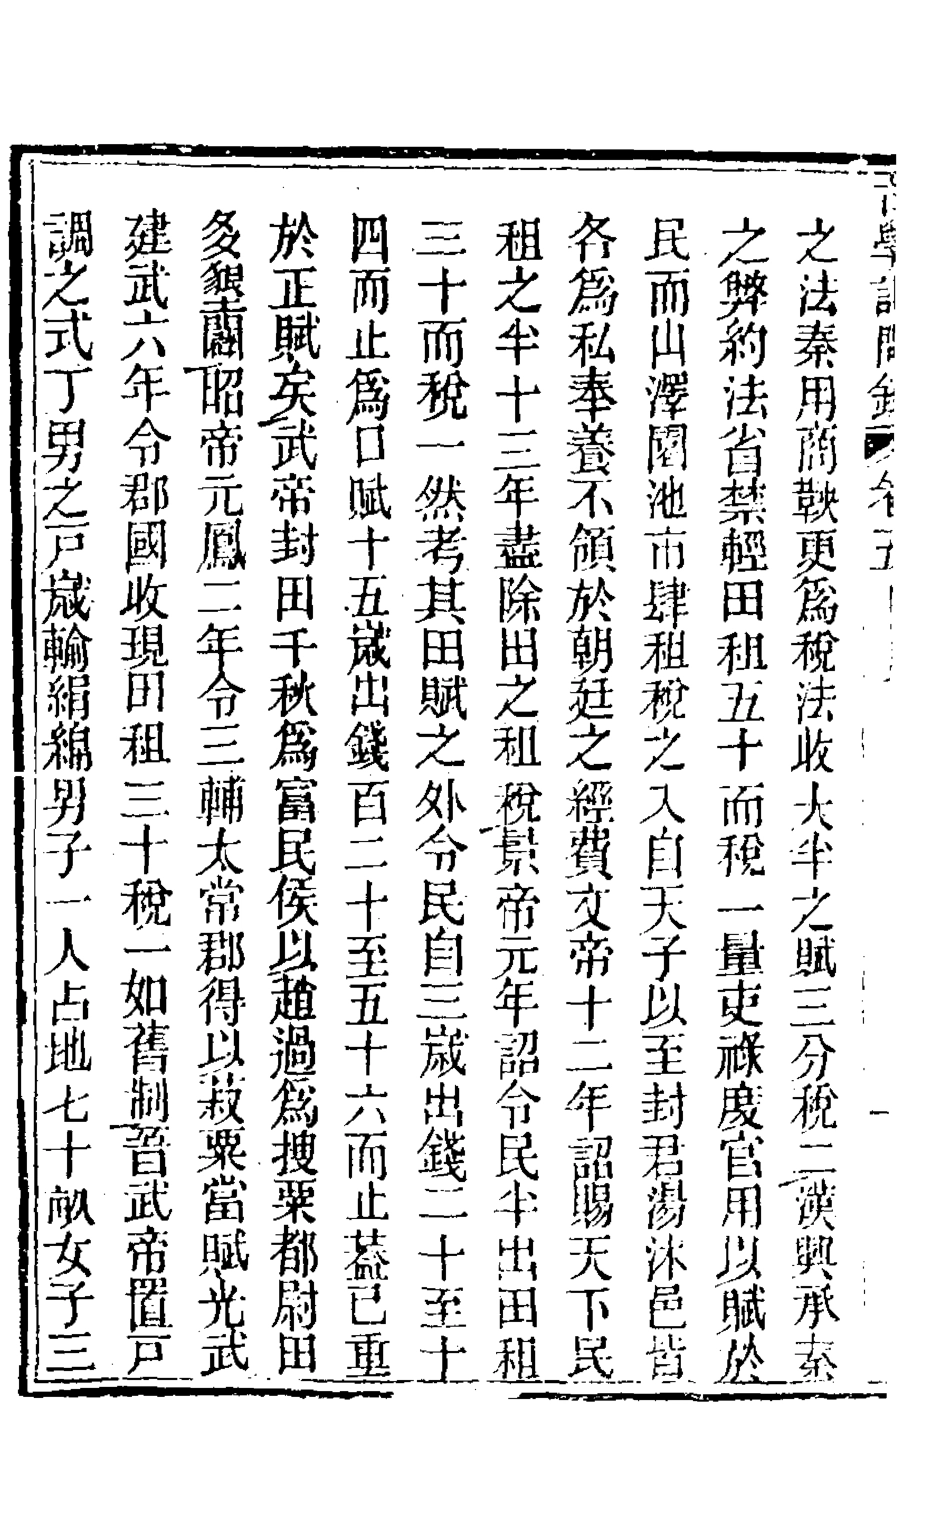 之法秦用商鞅更爲稅法收大半之賦三分稅二漢興承秦
之弊約法省禁輕田租五十而稅一量吏祿度官用以賦於
民而山澤園池市肆租稅之入自天子以至封君湯沐邑皆
各爲私奉養不領於朝廷之經費文帝十二年詔賜天下民
租之半十三年盡除田之租稅景帝元年詔令民半出田租
三十而稅一然考其田賦之外令民自三歲出錢二十至十
四而止爲口賦十五歲出錢百二十至五十六而止葢已重
於正賦矣武帝封田千秋爲富民侯以趙過爲搜粟都尉田
多墾闢昭帝元鳳二年令三輔太常郡得以菽粟當賦光武
建武六年令郡國收現田租三十稅一如舊制晉武帝置戸
調之式丁男之戸歲輸絹綿男子一人占地七十畝女子三